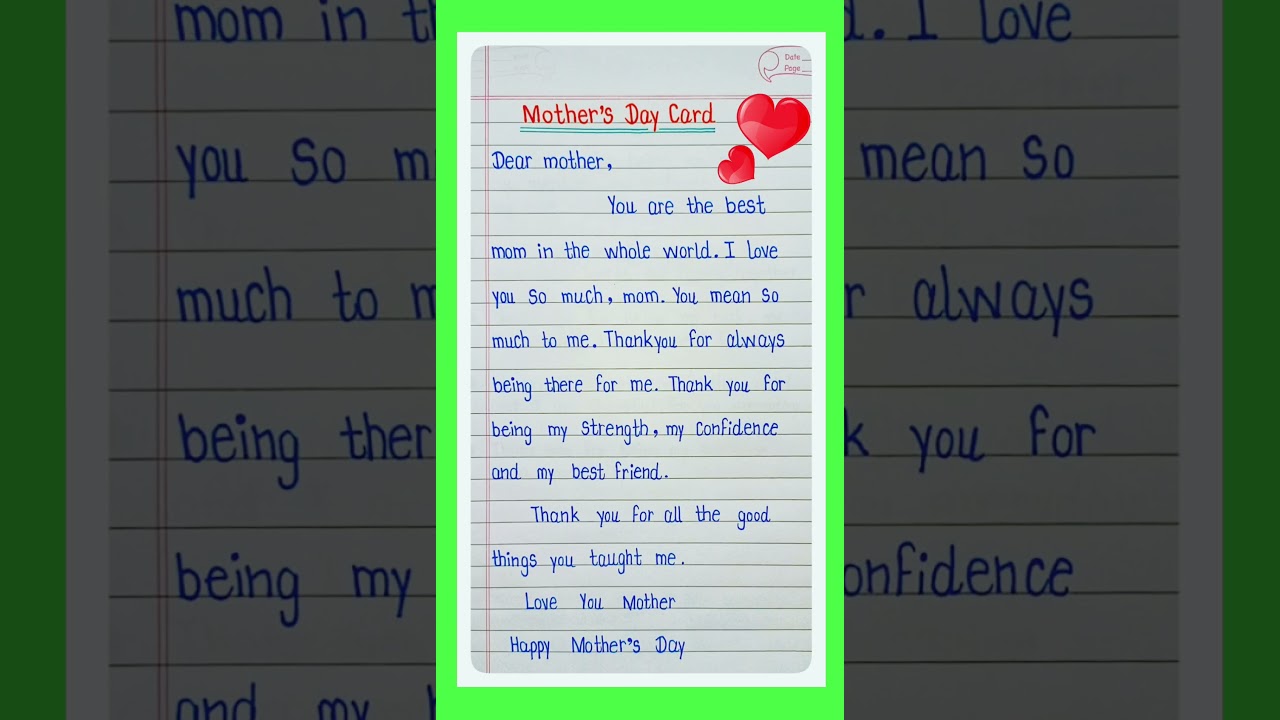 Date
Page
Mother's Day Card
Dear mother,
You are the best
mom in the whole world. I love
you so much, mom. You mean so
much to me. Thankyou for always
being there for me. Thank you for
being my strength, my confidence
and my best friend.
Thank you for all the good
things you taught me.
Love You Mother
Happy Mother's Day